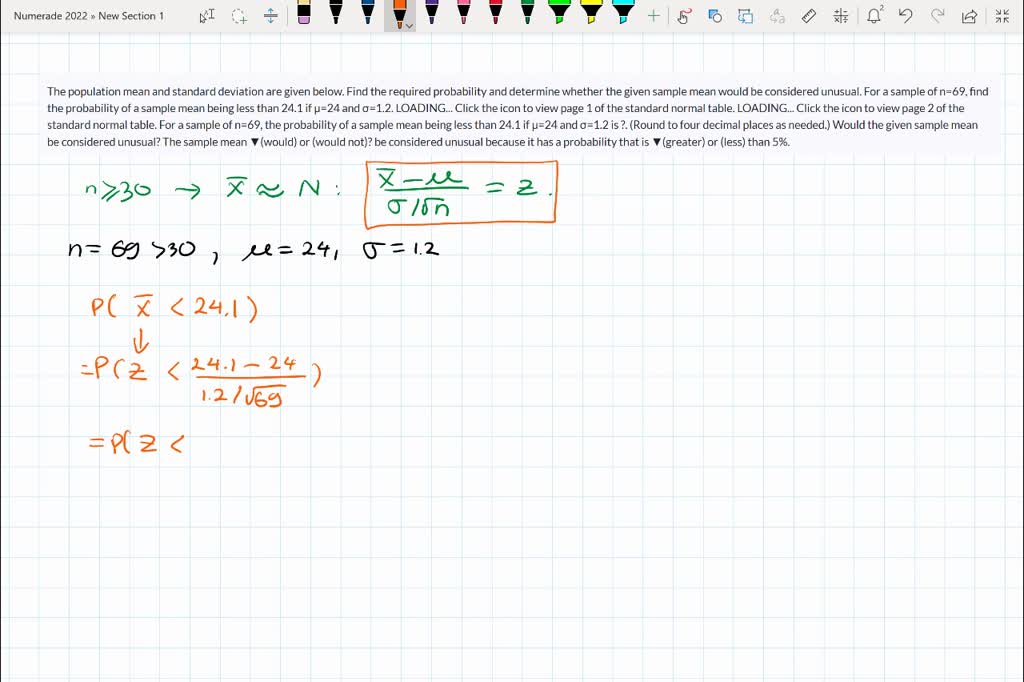 Numerade 2022 » New Section 1
2
The population mean and standard deviation are given below. Find the required probability and determine whether the given sample mean would be considered unusual. For a sample of n=69, find
the probability of a sample mean being less than 24.1 if μ=24 and σ=1.2. LOADING... Click the icon to view page 1 of the standard normal table. LOADING... Click the icon to view page 2 of the
standard normal table. For a sample of n=69, the probability of a sample mean being less than 24.1 if μ=24 and σ=1.2 is ?. (Round to four decimal places as needed.) Would the given sample mean
be considered unusual? The sample mean ▼(would) or (would not)? be considered unusual because it has a probability that is ▼(greater) or (less) than 5%.
n≥30 → x̄ ≈ N : (x̄ - μ)/(σ/√n) = z.
n = 69 >30 , μ = 24, σ = 1.2
P( x̄ < 24.1 )
↓
=P( z < (24.1 - 24)/(1.2/√69) )
=P( z <